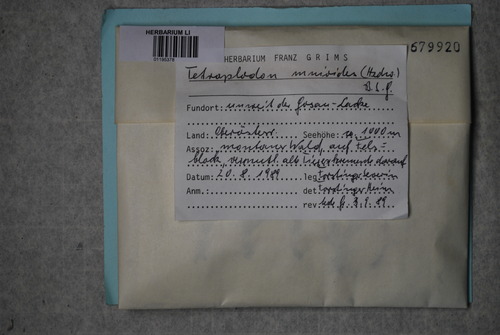 HERBARIUM LI
679920
HERBARIUM FRANZ GRIMS
Tetraplodon mnioides (Hedw.)
B.S.G.
Fundort: unweit der Gosau-Lacke
Land: Oberösterr. Seehöhe: ca. 1000 m
Assoz: montaner Wald, auf Fels=
block, vermutl. alte
Datum: 20.8.1989 leg.
Anm. det.
rev. 89